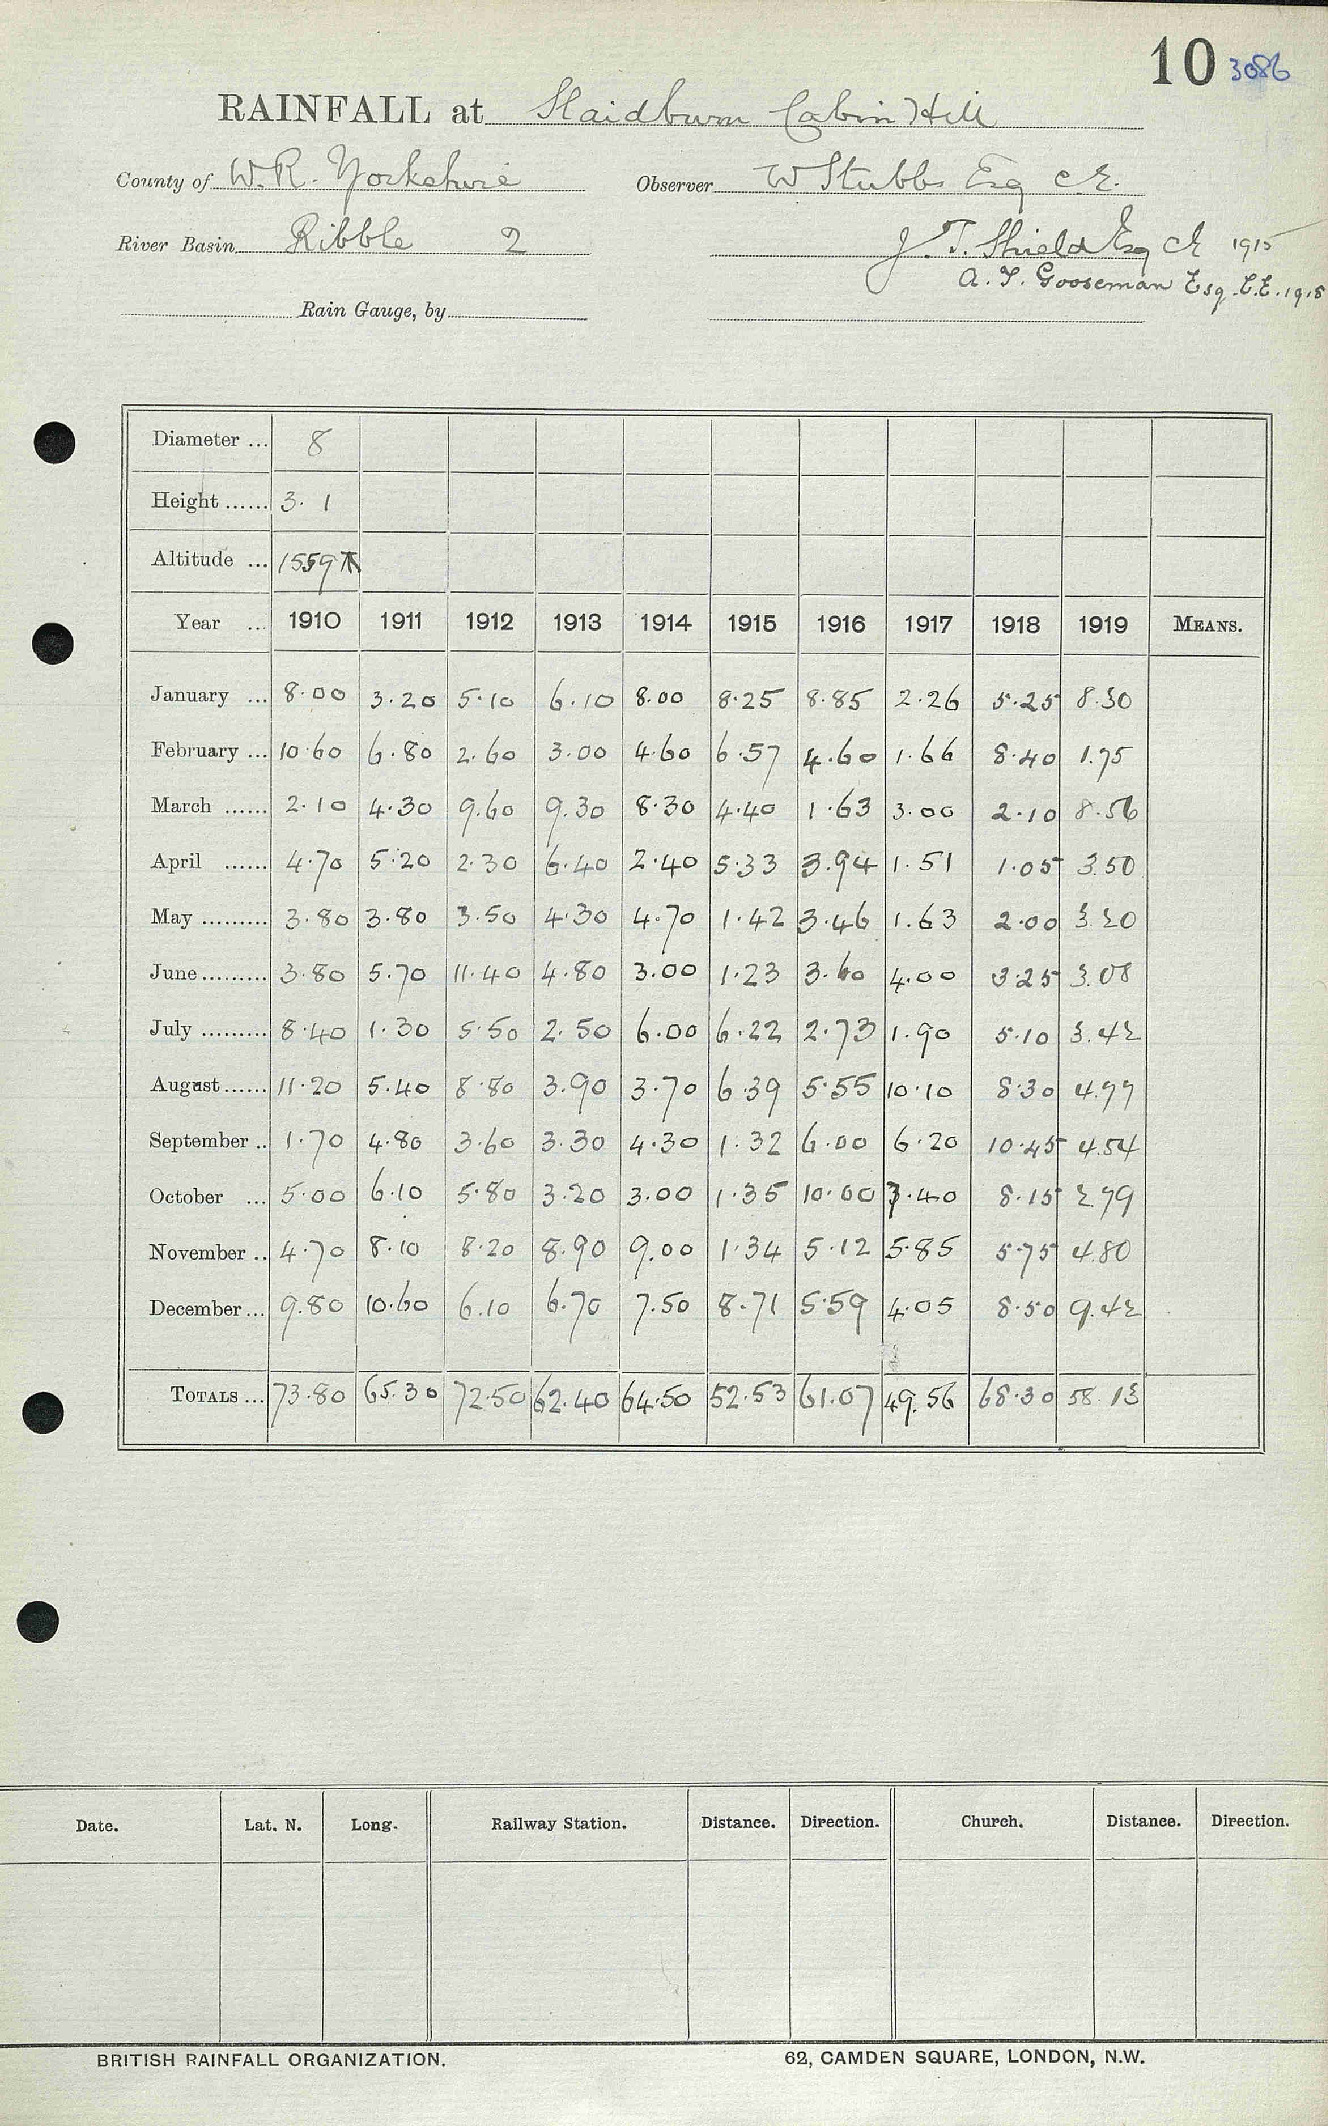 10 3086
RAINFALL at Slaidburn Cabin Hill
County of W.R. Yorkshire Observer W Stubbs Esq C.E.
River Basin Ribble 2 J. T. Shield Esq CE 1915
A. F. Gooseman Esq. C.E. 1918
Rain Gauge, by
Diameter ... 8
Height ...... 3. 1
Altitude ... 1559
Year ... 1910 1911 1912 1913 1914 1915 1916 1917 1918 1919 MEANS.
January ... 8.00 3.20 5.10 6.10 8.00 8.25 8.85 2.26 5.25 8.30
February ... 10.60 6.80 2.60 3.00 4.60 6.57 4.60 1.66 8.40 1.75
March ...... 2.10 4.30 9.60 9.30 8.30 4.40 1.63 3.00 2.10 8.56
April ...... 4.70 5.20 2.30 6.40 2.40 5.33 3.94 1.51 1.05 3.50
May ......... 3.80 3.80 3.50 4.30 4.70 1.42 3.46 1.63 2.00 3.20
June ......... 3.80 5.70 11.40 4.80 3.00 1.23 3.60 4.00 3.25 3.08
July ......... 8.40 1.30 5.50 2.50 6.00 6.22 2.73 1.90 5.10 3.42
August ...... 11.20 5.40 8.80 3.90 3.70 6.39 5.55 10.10 8.30 4.77
September .. 1.70 4.80 3.60 3.30 4.30 1.32 6.00 6.20 10.45 4.54
October ... 5.00 6.10 5.80 3.20 3.00 1.35 10.00 7.40 8.15 2.79
November .. 4.70 8.10 8.20 8.90 9.00 1.34 5.12 5.85 5.75 4.80
December ... 9.80 10.60 6.10 6.70 7.50 8.71 5.59 4.05 8.50 9.42
TOTALS ... 73.80 65.30 72.50 62.40 64.50 52.53 61.07 49.56 68.30 58.13
Date. Lat. N. Long. Railway Station. Distance. Direction. Church. Distance. Direction.
BRITISH RAINFALL ORGANIZATION. 62, CAMDEN SQUARE, LONDON, N.W.